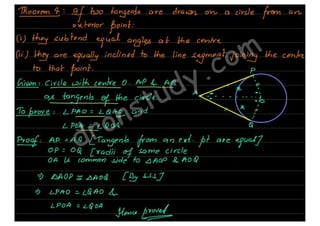 Theorem 4: If two tangents are drawn on a circle from an
exterior point:
(i) they subtend equal angles at the centre
(ii) they are equally inclined to the line segment joining the centre
to that point.
Given: Circle with centre O. AP & AQ
are tangents of the circle
To prove: ∠PAO = ∠QAO and
∠POA = ∠QOA
Proof: AP = AQ [Tangents from an ext. pt are equal]
OP = OQ [radii of same circle
OA is common side to △AOP & AOQ
⇒ △AOP ≅ △AOQ [By SSS]
⇒ ∠PAO = ∠QAO &
∠POA = ∠QOA
Hence proved
P
A
O
Q